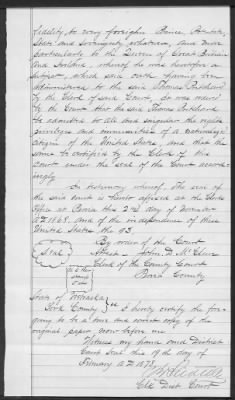 fidelity, to every foreign Prince, Potentate,
State and Sovereignty whatever, and more
particularly to the Queen of Great Britain
and Ireland, whereof he was heretofore a
subject, which said oath having been
administered to the said Thomas
by the Clerk of said Court, it was ordered
by the Court that the said Thomas
be admitted to all and singular the rights
privileges and immunities of a naturalized
citizen of the United States, and that the
same be certified by the Clerk of this
court under the Seal of the Court accord-
ingly.
In testimony whereof, the seal of
the said court is hereto affixed at the Clerks
office at this 2nd day of November
A.D. 1868, and of the independence of these
United States the 93.
By order of the Court
Seal
Attest John D. McClure
Clerk of the County Court
County
State of Nebraska
York County } ss I hereby certify the fore-
going to be a true and correct copy of the
original paper now before me.
Witness my hand and District
Court Seal this 19th day of
February A.D. 1873.
Clk Dist Court